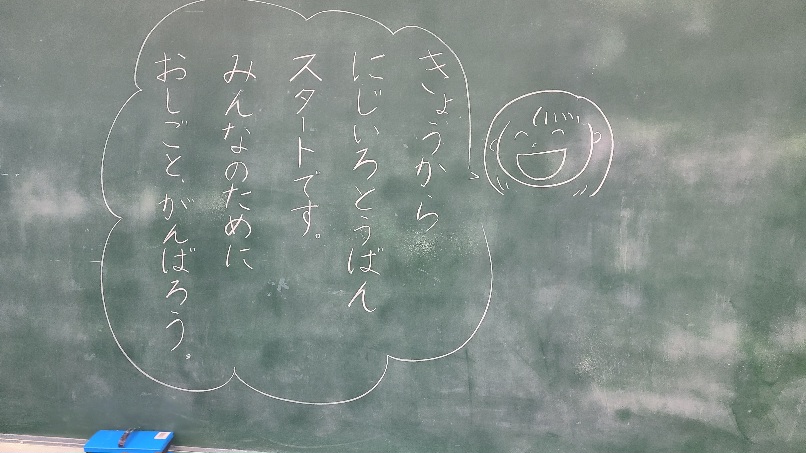 きょうから
にじいろとうばん
スタートです。
みんなのために
おしごと、がんばろう。